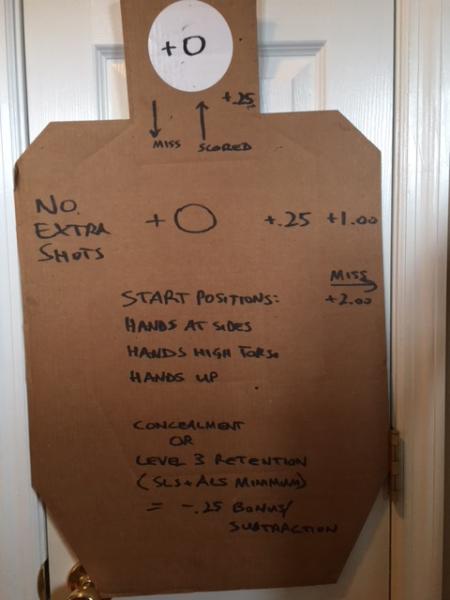 +0
+.25
MISS SCORED
NO EXTRA SHOTS
+0 +.25 +1.00
MISS
+2.00
START POSITIONS:
HANDS AT SIDES
HANDS HIGH TORSO
HANDS UP
CONCEALMENT
OR
LEVEL 3 RETENTION
(SLS + ALS MINIMUM)
= -.25 BONUS/
SUBTRACTION